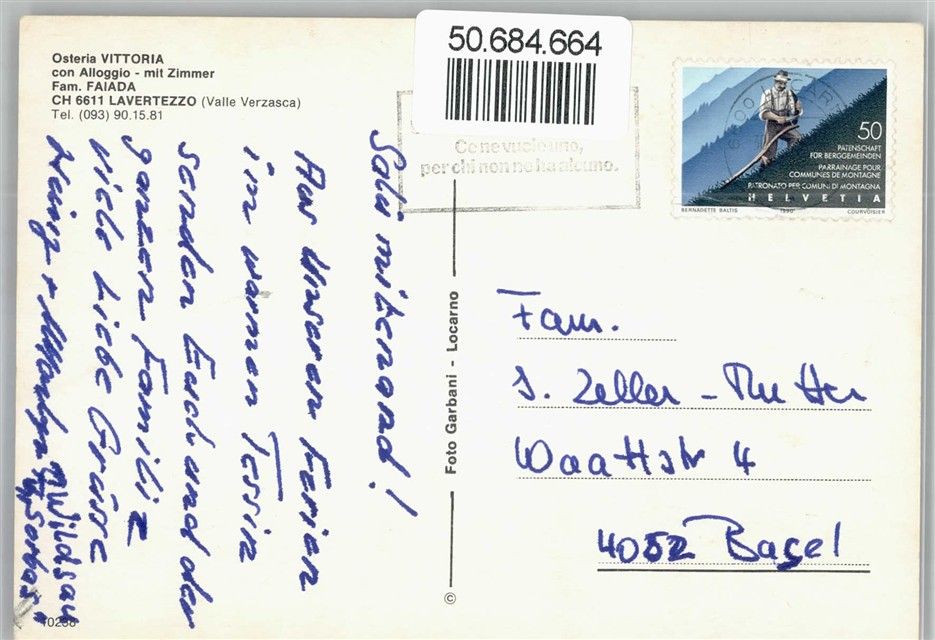 Osteria VITTORIA
con Alloggio - mit Zimmer
Fam. FAIADA
CH 6611 LAVERTEZZO (Valle Verzasca)
Tel. (093) 90.15.81
50.684.664
Ce ne vuole uno,
per chi non ne ha alcuno.
50
PATENSCHAFT
FÜR BERGGEMEINDEN
PARRAINAGE POUR
COMMUNES DE MONTAGNE
PATRONATO PER COMUNI DI MONTAGNA
HELVETIA
BERNADETTE BALTIS 1990 COURVOISIER
Salü mitenand!
Aus Unseren Ferien
im warmen Tessin
senden Euch und der
ganzen Familie
viele Liebe Grüsse
Heinz +
"Wildsau
© Foto Garbani - Locarno
Fam.
Zeller -
4
4052 Basel
10238